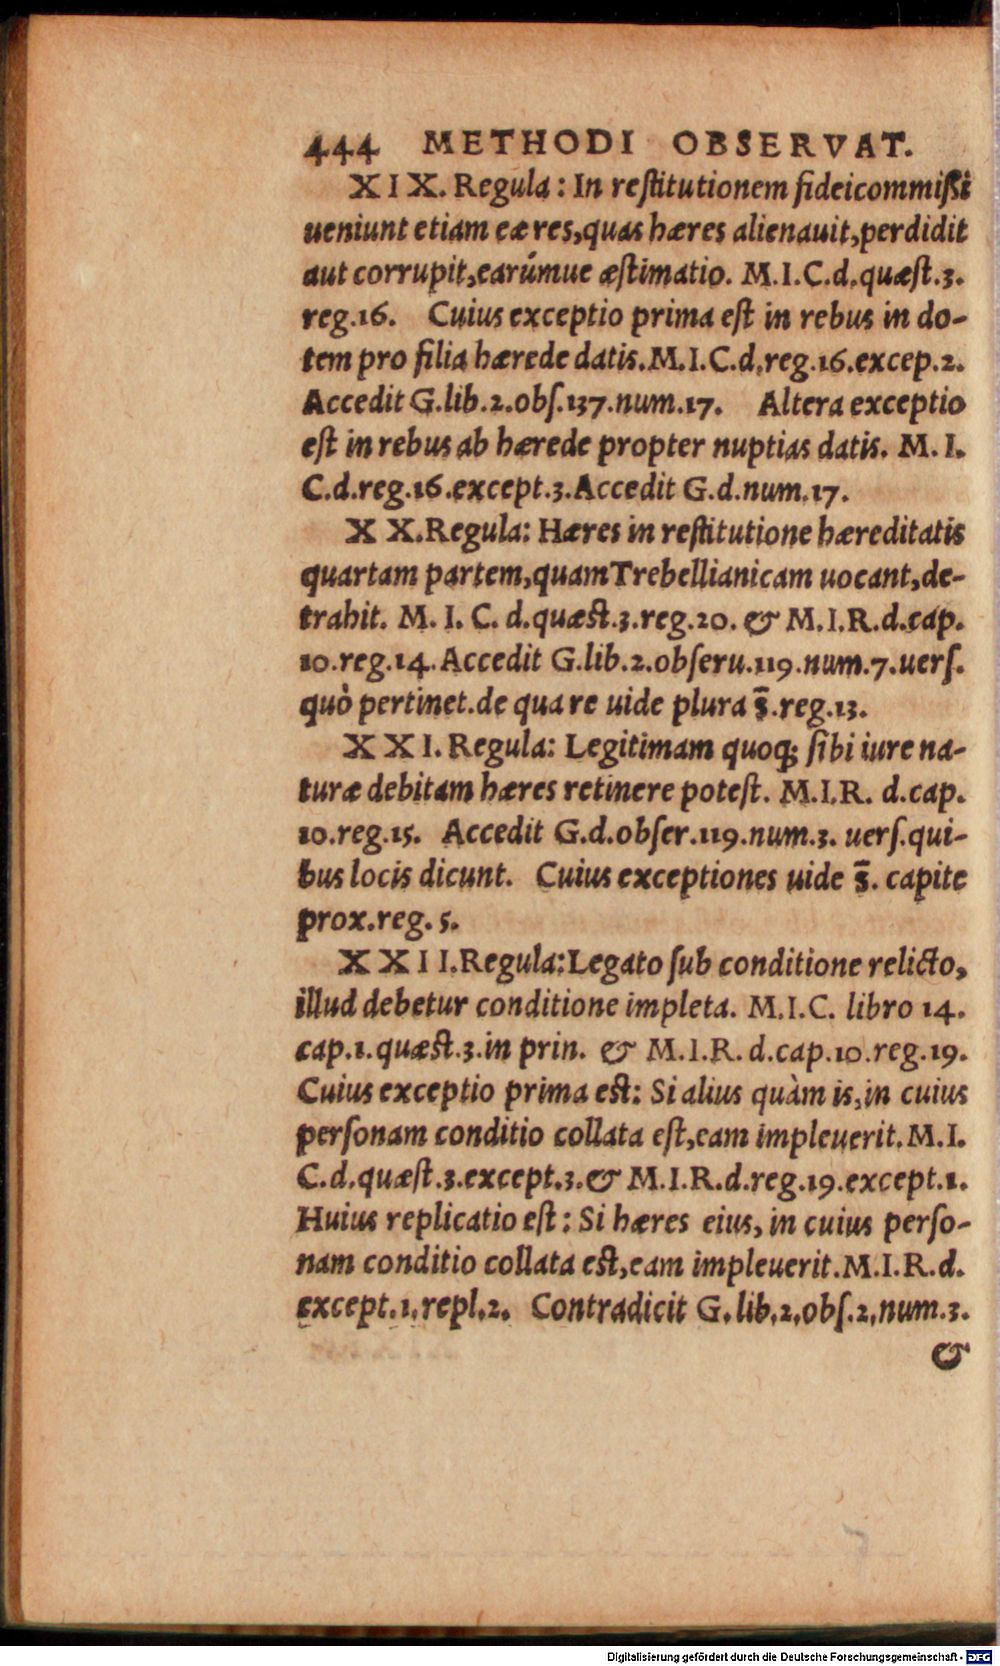 444 METHODI OBSERVAT.
XIX. Regula: In reſtitutionem fideicommiſsi
ueniunt etiam eæ res, quas hæres alienauit, perdidit
aut corrupit, earúmue æſtimatio. M.I.C.d.quæſt.3.
reg.16. Cuius exceptio prima eſt in rebus in do-
tem pro filia hærede datis. M.I.C.d.reg.16.excep.2.
Accedit G.lib.2.obſ.137.num.17. Altera exceptio
eſt in rebus ab hærede propter nuptias datis. M. I.
C.d.reg.16.except.3. Accedit G.d.num.17.
XX. Regula: Hæres in reſtitutione hæreditatis
quartam partem, quam Trebellianicam uocant, de-
trahit. M. I. C. d.quæſt.3.reg.20. & M.I.R.d.cap.
10.reg.14. Accedit G.lib.2.obſeru.119.num.7.uerſ.
quò pertinet. de qua re uide plura s̄.reg.13.
XXI. Regula: Legitimam quoq; ſibi iure na-
turæ debitam hæres retinere poteſt. M.I.R. d.cap.
10.reg.15. Accedit G.d.obſer.119.num.3. uerſ.qui-
bus locis dicunt. Cuius exceptiones uide s̄. capite
prox.reg. 5.
XXII. Regula: Legato ſub conditione relicto,
illud debetur conditione impleta. M.I.C. libro 14.
cap.1.quæſt.3.in prin. & M.I.R. d.cap.10.reg.19.
Cuius exceptio prima eſt: Si alius quàm is, in cuius
perſonam conditio collata eſt, eam impleuerit. M.I.
C.d.quæſt.3.except.3. & M.I.R.d.reg.19.except.1.
Huius replicatio eſt: Si hæres eius, in cuius perſo-
nam conditio collata eſt, eam impleuerit. M.I.R.d.
except.1.repl.2. Contradicit G.lib.2.obſ.2.num.3.
&
Digitalisierung gefördert durch die Deutsche Forschungsgemeinschaft - DFG